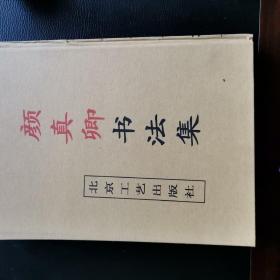 颜真卿书法集
北京工艺出版社